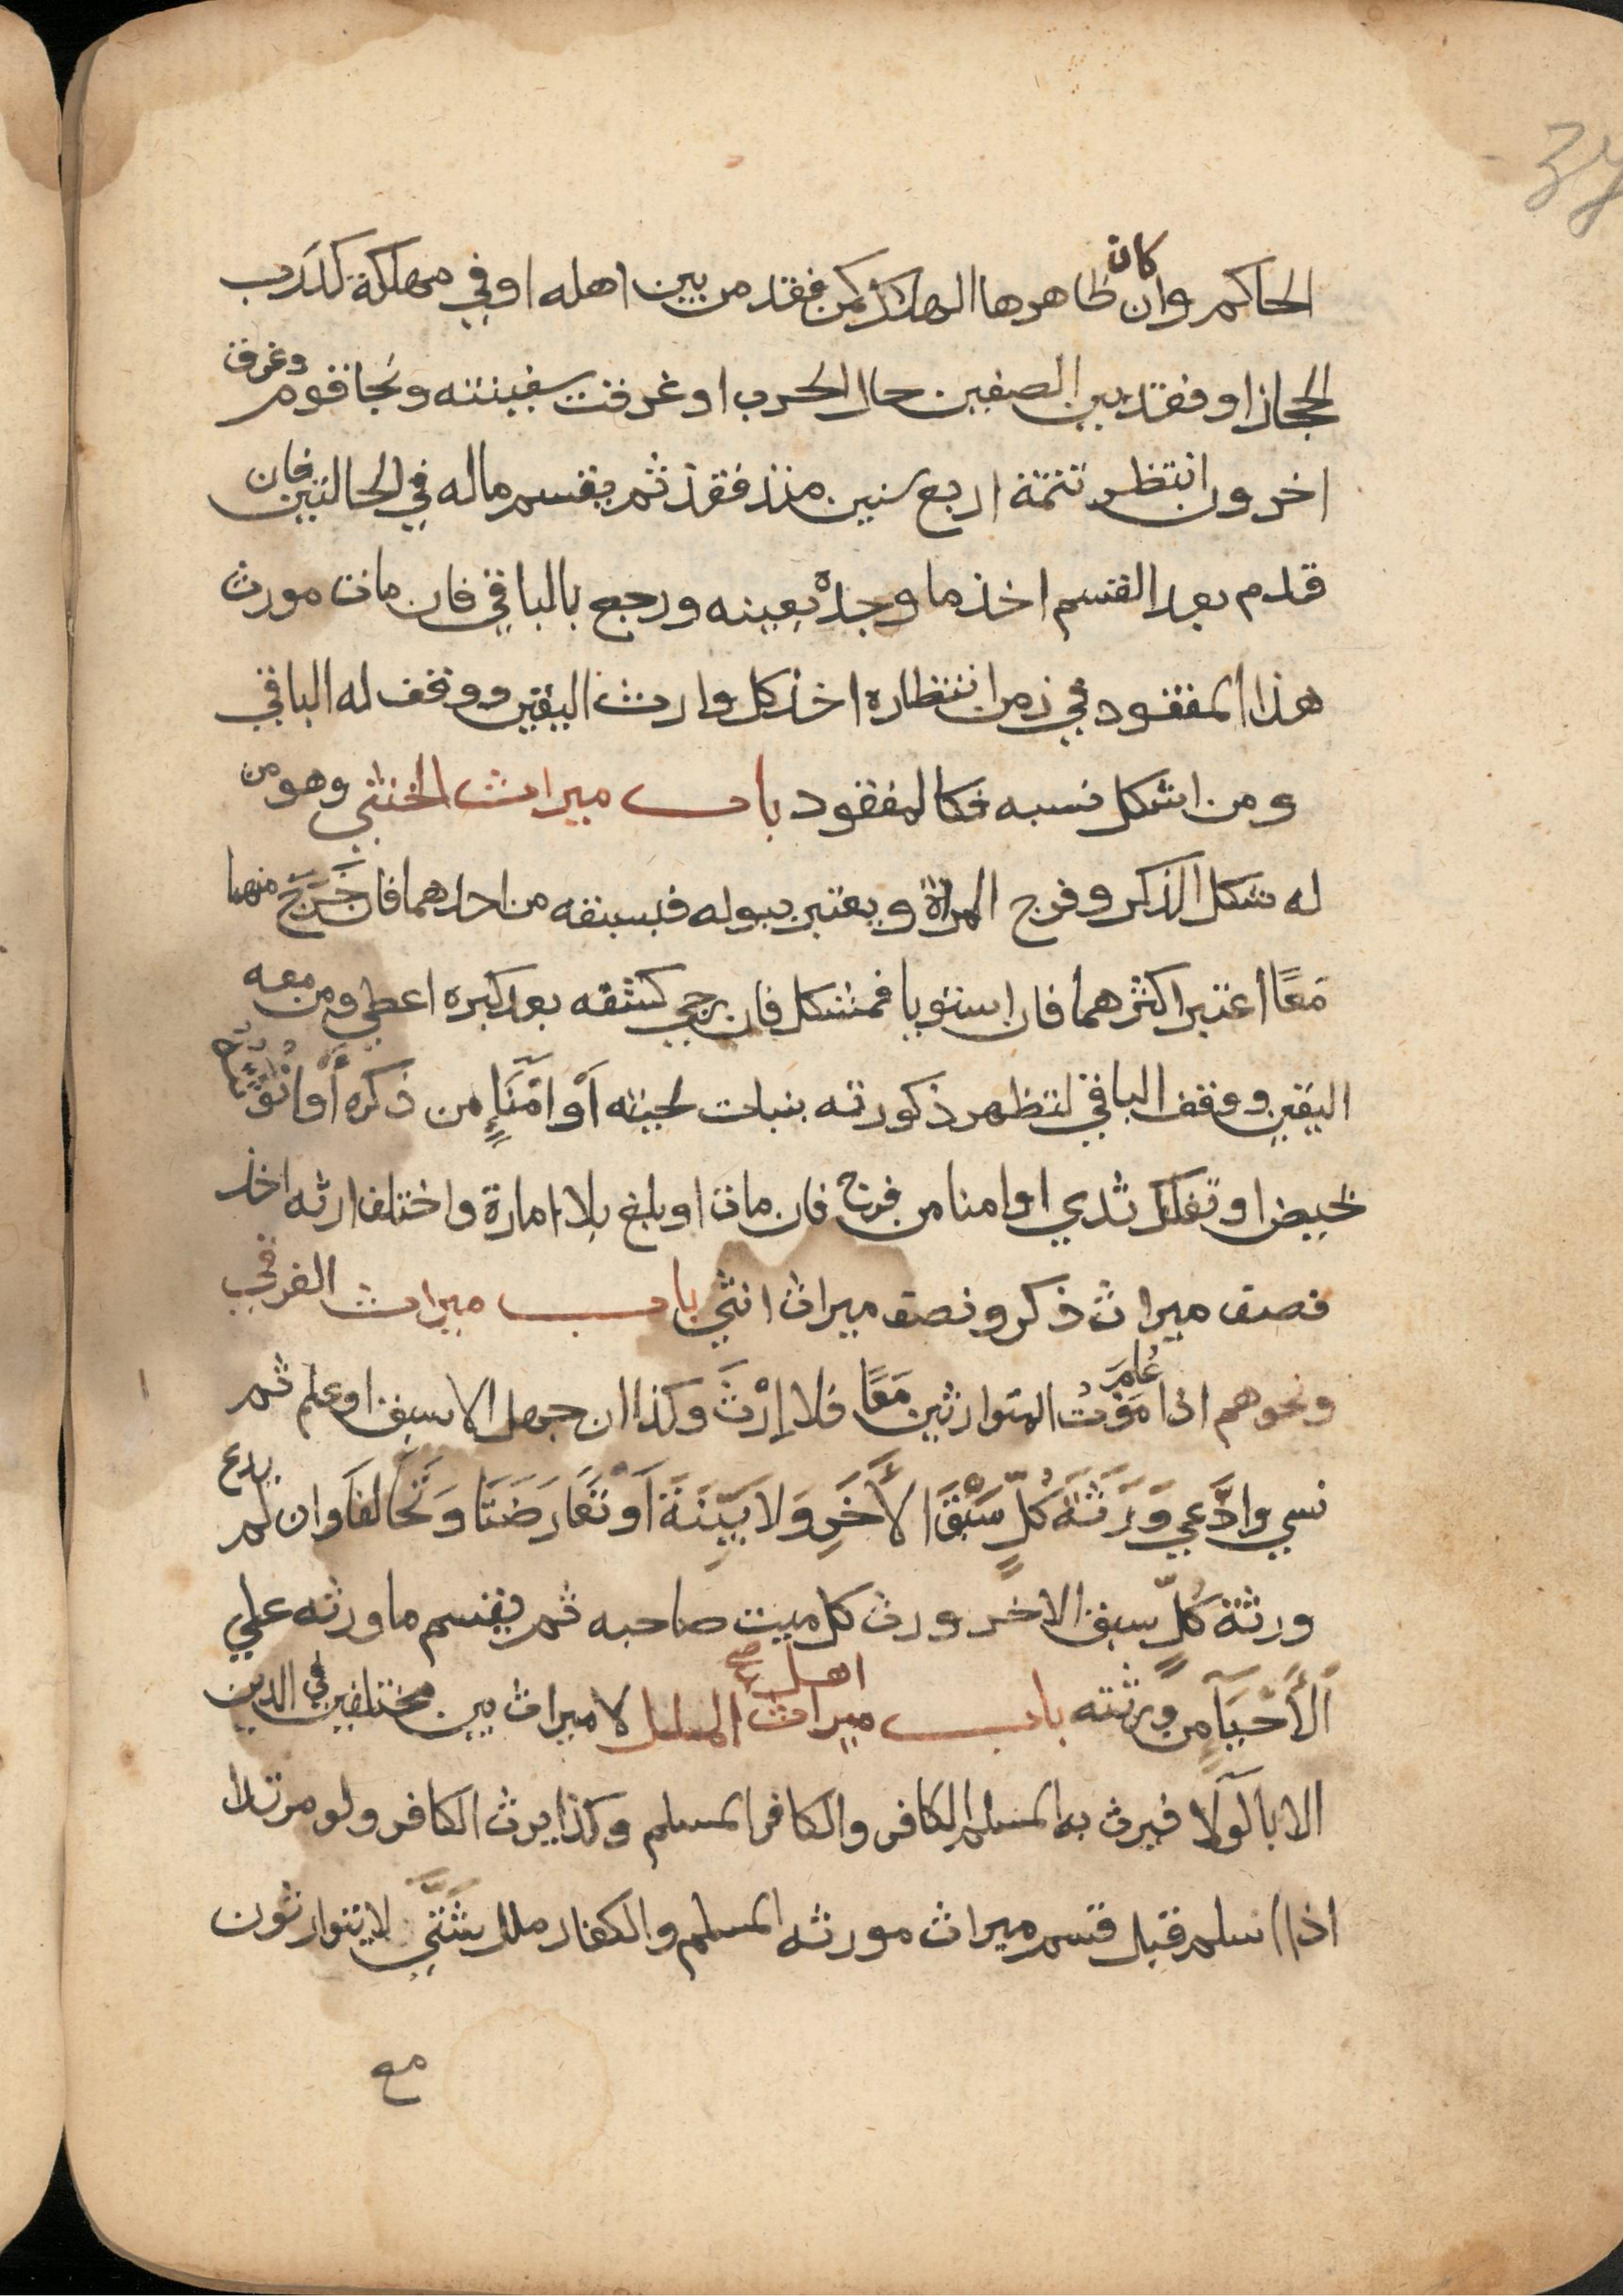 الحاكم وان كان ظاهرها الهلاك كمن فقد من بين اهله او في مهلكة كدرب
الحجاز او فقد بين الصفين حال الحرب او غرقت سفينته ونجا قوم وغرق
اخرون انتظر تتمة اربع سنين منذ فقد ثم يقسم ماله في الحالتين فان
قدم بعد القسم اخذ ما وجده بعينه ورجع بالباقي فان مات مورث
هذا المفقود في زمن انتظاره اخذ كل وارث اليقين ووقف له الباقي
ومن اشكل نسبه فكالمفقود باب ميراث الخنثي وهو من
له شكل الذكر وفرج المراة ويعتبر ببوله فبسبقه من احدهما فان خَرَجَ منهما
مَعًا اعتبر اكثرهما فان استويا فمشكل فان رجي كشفه بعد كبره اعطي ومن معه
اليقين ووقف الباقي لتظهر ذكورته بنبات لحيته أَوْ امْنَاءٍ من ذكره أَوْ انُوثَتُهُ
بحيض او تفلك ثدي او امنا من فرج فان مات او بلغ بلا امارة واختلف ارثه اخذ
نصف ميراث ذكر ونصف ميراث انثي باب ميراث الغرقي
ونحوهم اذا عُلِمَ مَوْتُ المتوارثين مَعًا فلا إِرْثَ وكذا ان جهل الاسبق او علم ثم
نسي وادَّعي وَرَثَةُ كُلٍّ سَبْقَ الأَخَرِ وَلا بَيِّنَةَ أَوْ تَعَارَضَتَا وَتَحَالَفَا وان لم يدع
ورثة كُلٍّ سبق الاخر ورث كل ميت صاحبه ثم يقسم ما ورثه علي
الأَحْيَآءِ من وَرثته باب ميراث اهل الملل لا ميراث بين مختلفين في الدين
الا بالولآ فيرث به المسلم الكافر والكافر المسلم وكذا يرث الكافر ولو مرتدا
اذا اسلم قبل قسم ميراث مورثه المسلم والكفار ملل شَتَّي لا يتوارثون
مع